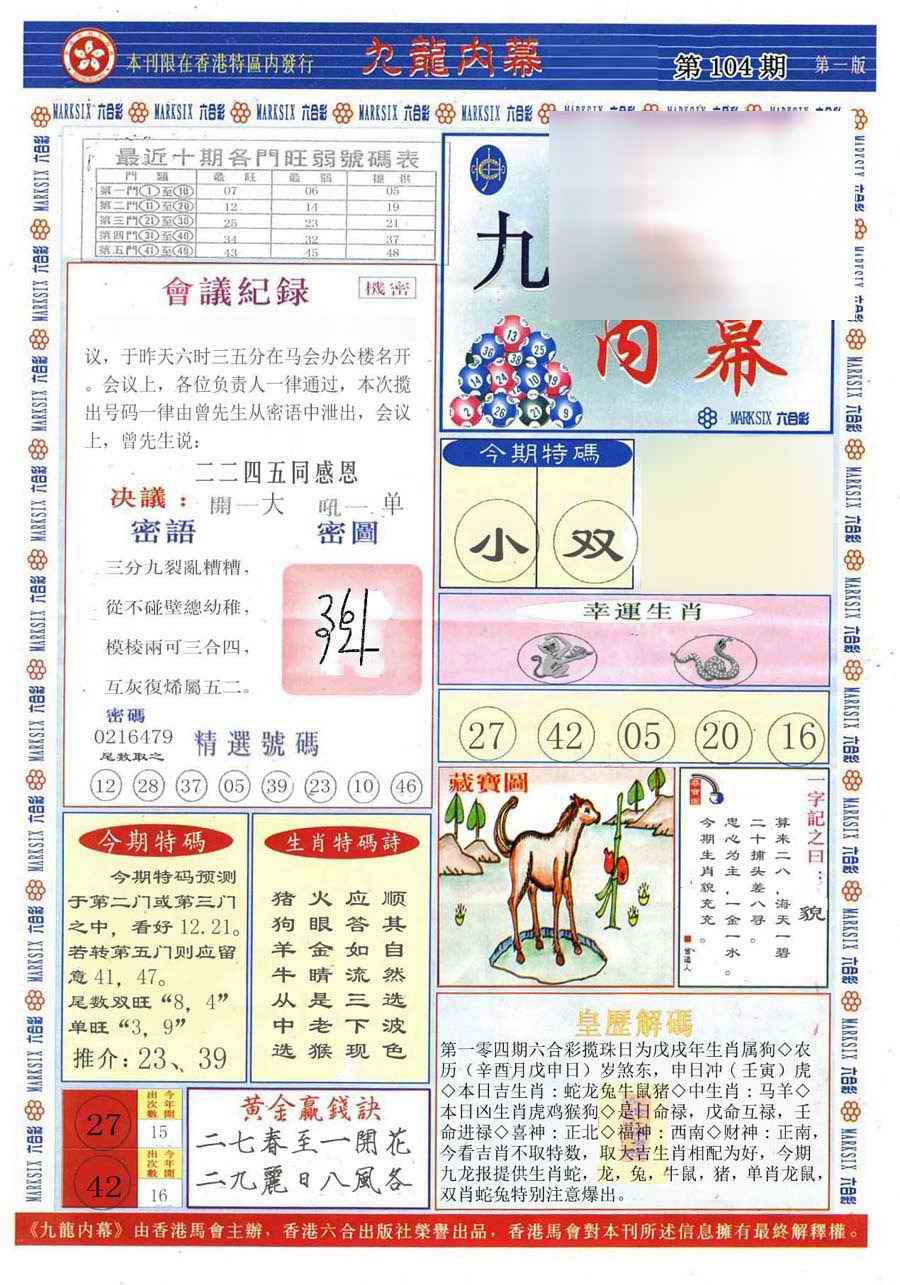 本刊限在香港特區内發行
九龍内幕
第104期
第一版
MARKSIX 六合彩
最近十期各門旺弱號碼表
門類 最旺 最弱 提供
第一門①至⑩ 07 06 05
第二門⑪至⑳ 12 14 19
第三門㉑至㉚ 25 23 21
第四門㉛至㊵ 34 32 37
第五門㊶至㊾ 43 45 48
會議紀録
機密
议，于昨天六时三五分在马会办公楼名开
。会议上，各位负责人一律通过，本次揽
出号码一律由曾先生从密语中泄出，会议
上，曾先生说：
二二四五同感恩
决議：開一大 吼一单
密語 密圖
三分九裂亂糟糟，
從不碰壁總幼稚，
模棱兩可三合四，
互灰復烯屬五二。
密碼
0216479
尾数取之
精選號碼
12 28 37 05 39 23 10 46
九
内幕
13
36 38 25
14 24 10 19
2 26 21 9
MARKSIX 六合彩
今期特碼
小 双
幸運生肖
27 42 05 20 16
藏寶圖
一字記之曰：貌
算来二八，海天一碧
二十捕头差八寻。
忠心为主，一金一水。
今期生肖貌充充。
今期特码
今期特码预测
于第二门或第三门
之中，看好12.21。
若转第五门则应留
意41，47。
尾数双旺“8，4”
单旺“3，9”
推介：23、39
生肖特碼詩
猪火应顺
狗眼答其
羊金如自
牛睛流然
从是三选
中老下波
选猴现色
27
今年開出次數
15
42
今年開出次數
16
黄金贏錢訣
二七春至一開花
二九麗日八風各
皇歷解碼
第一零四期六合彩揽珠日为戊戌年生肖属狗◇农
历（辛酉月戊申日）岁煞东，申日冲（壬寅）虎
◇本日吉生肖：蛇龙兔牛鼠猪◇中生肖：马羊◇
本日凶生肖虎鸡猴狗◇是日命禄，戊命互禄，壬
命进禄◇喜神：正北◇福神：西南◇财神：正南，
今看吉肖不取特数，取大吉生肖相配为好，今期
九龙报提供生肖蛇，龙，兔，牛鼠，猪，单肖龙鼠，
双肖蛇兔特别注意爆出。
《九龍内幕》由香港馬會主辦，香港六合出版社榮譽出品，香港馬會對本刊所述信息擁有最終解釋權。